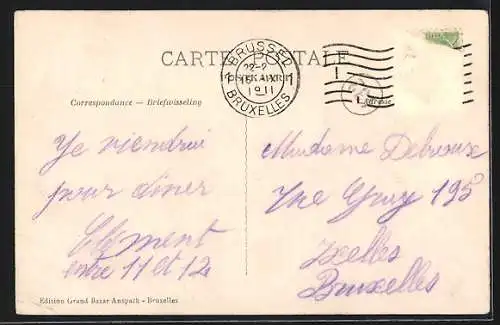 CARTE POSTALE
1 BRUSSEL 1
1911
BRUXELLES
Correspondance — Briefwisseling
Adresse
Je viendrai
pour diner
Clément
entre 11 et 12
Madame
Rue Gray 195
Ixelles
Bruxelles
Edition Grand Bazar Anspach - Bruxelles